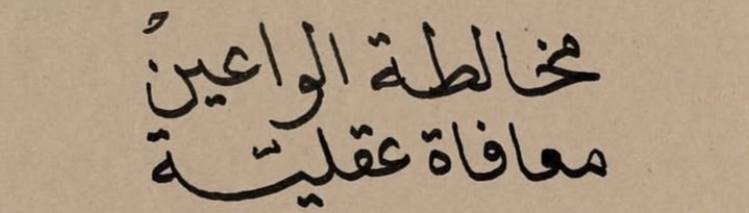 مخالطة الواعينُ
معافاة عقليّة